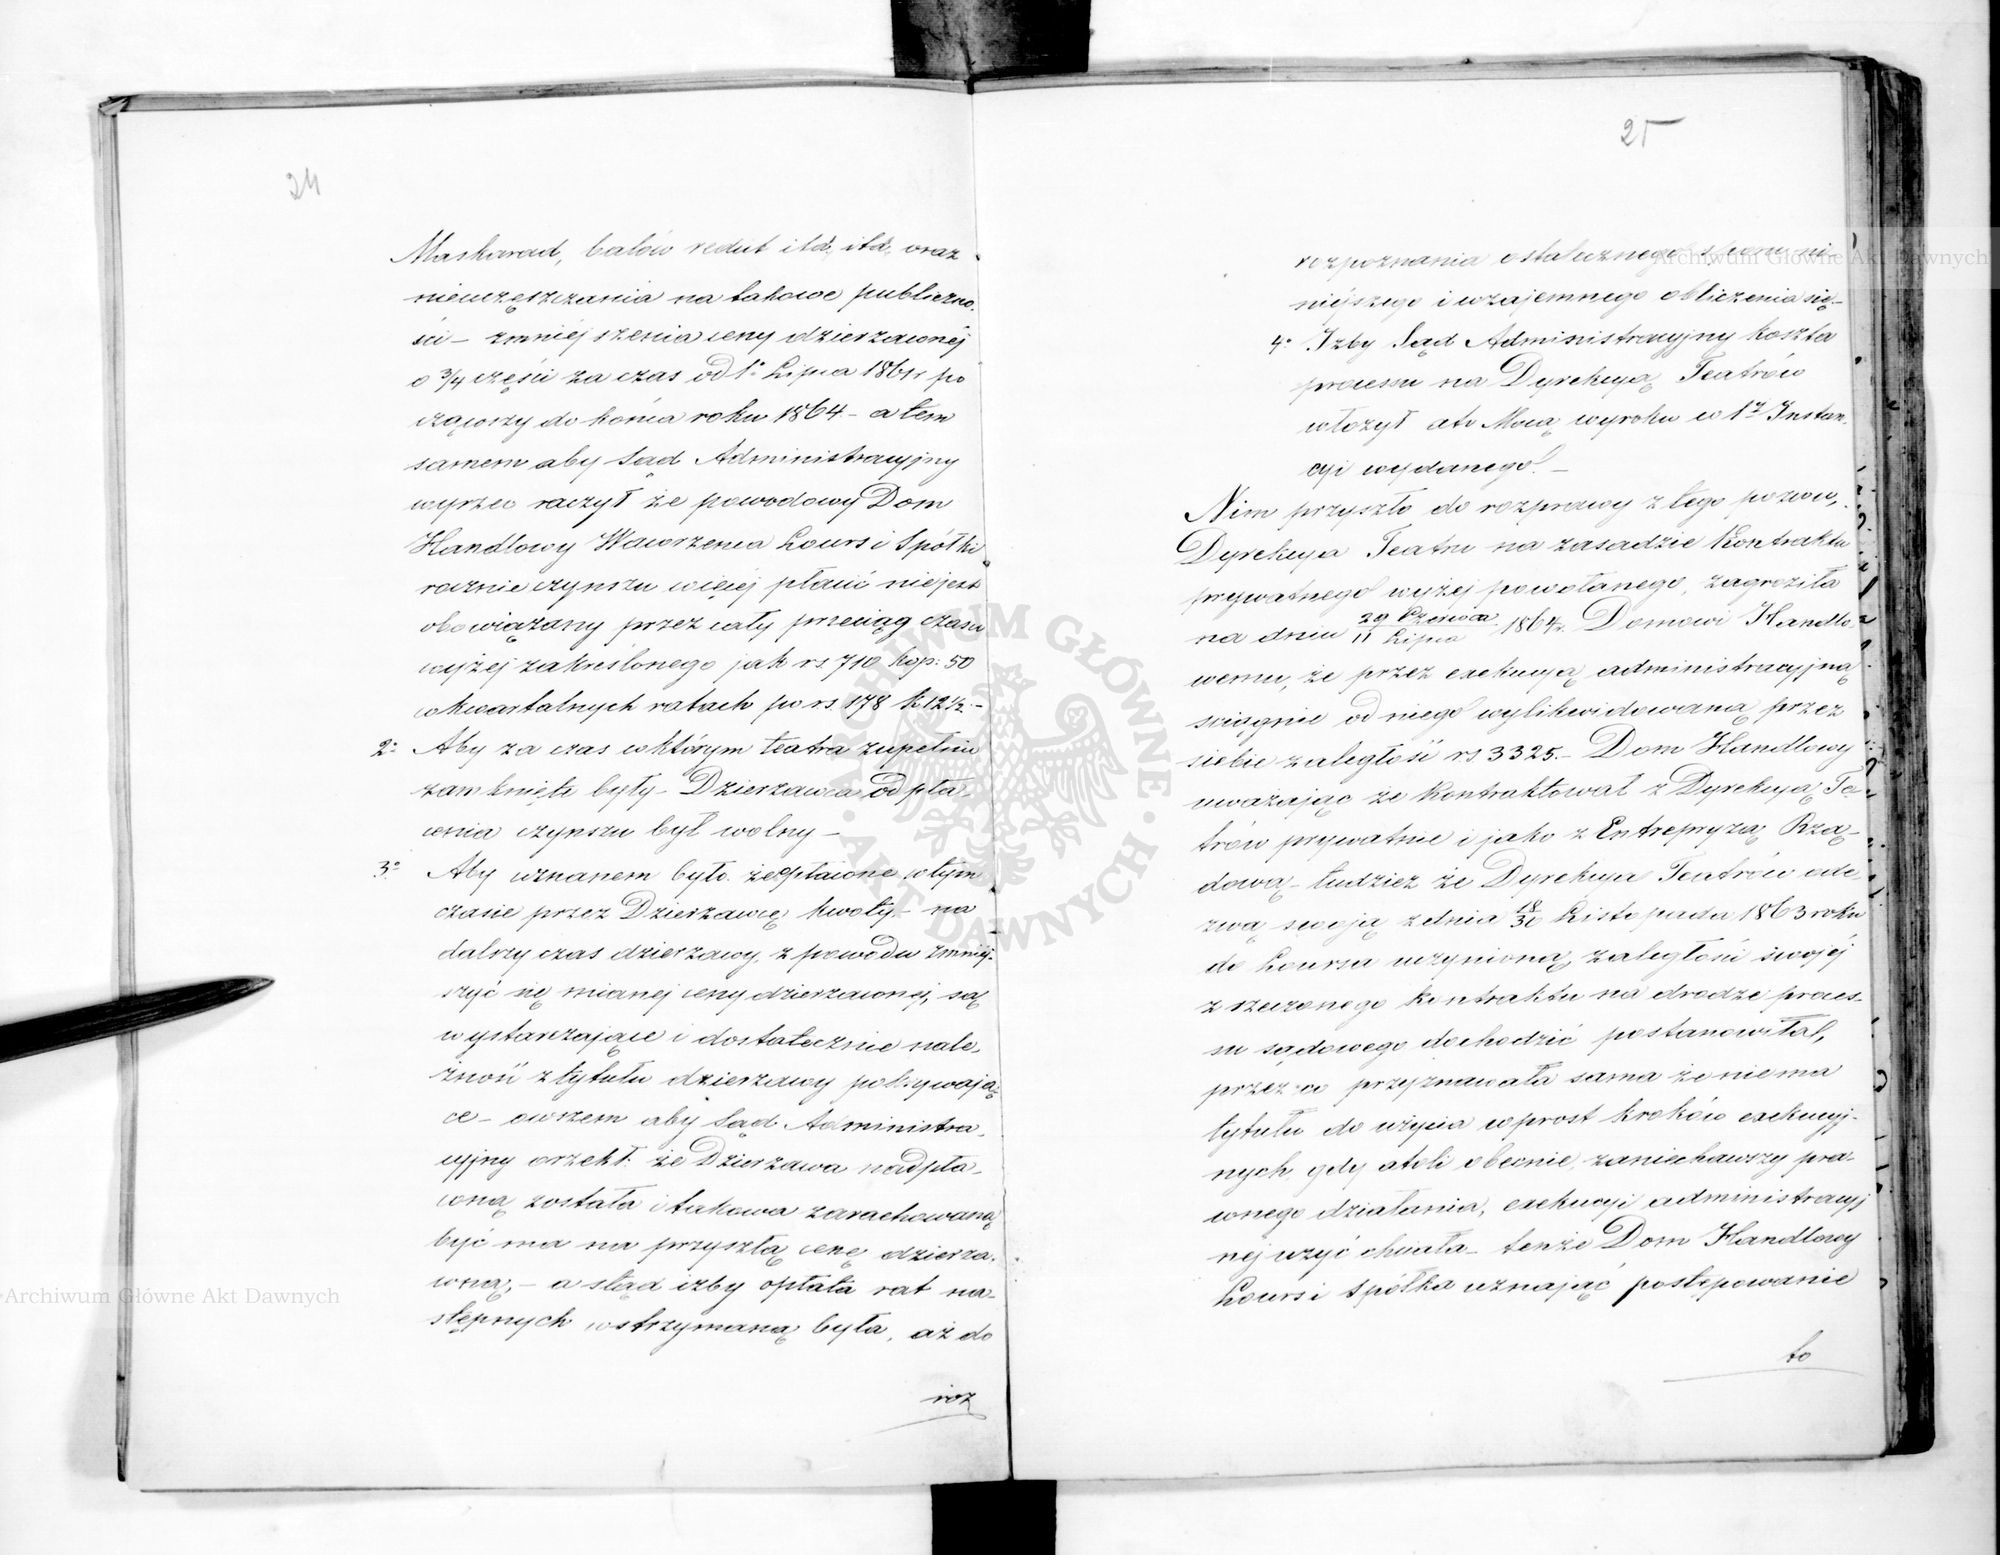 24
Maskarad, balów redut itd, itd, oraz
nieuczęszczania na takowe publiczno-
ści – zmniejszenia ceny dzierzawnéj
o 3/4 części za czas od 1o Lipca 1861r po
cząwszy do końca roku 1864 – a tem
samem aby Sąd Administracyjny
wyrzec raczył że powodowy Dom
Handlowy Wawrzenca Lours i Spółki
rocznie czynszu więcéj płacić niejest
obowiązany przez cały przeciąg czasu
wyżej zakreślonego jak rs 710 kop: 50
w kwartalnych ratach po rs. 178 k 12½ –
2o Aby za czas w którym teatra zupełnie
zamknięte były – Dzierzawca od pła-
cenia czynszu był wolny –
3o Aby uznanem było że opłacone w tym
czasie przez Dzierzawcę kwoty – na
dalszy czas dzierzawy, z powodu zmniej-
szyć się mianej ceny dzierzawnej, są
wystarczające i dostatecznie nale-
żność z tytułu dzierzawy pokrywają
ce – owszem aby Sąd Administra-
cyjny orzekł że Dzierzawa nadpła-
coną została i takowa zarachowaną
być ma na przyszłą cenę dzierza-
wną, – a stąd izby opłata rat na-
stępnych wstrzymaną była, aż do
roz
25
rozpoznania ostatecznego sporu ni-
niejszego i wzajemnego obliczenia się –
4o Izby Sąd Administracyjny koszta
processu na Dyrekcyą Teatrów
włożył ato Mocą wyroku w 1éj Instan-
cyi wydanego. –
Nim przyszło do rozprawy z tego pozwu,
Dyrekcya Teatru na zasadzie Kontraktu
prywatnego wyżej powołanego, zagroziła
na dniu 29 Czerwca / 11 Lipca 1864r. Domowi Handlo
wemu, że przez exekucyą administracyjną
ściągnie od niego wylikwidowaną przez
siebie zaległość rs 3325. – Dom Handlowy
uważając że kontraktował z Dyrekcyą Tea
trów prywatnie i jako z Entrepryzą Rzą-
dową – tudzież że Dyrekcya Teatrów ode
zwą swoją z dnia 18/30 Listopada 1863 roku
do Loursa uczynioną, zaległości swojéj
z rzeczonego kontraktu na drodze proces-
su sądowego dochodzić postanowiła,
przez co przyznawała sama że nie ma
tytułu do użycia wprost kroków exekucyj-
nych, gdy atoli obecnie, zaniechawszy pra-
wnego działania, exekucyi administracyj
nej użyć chciała – tenże Dom Handlowy
Lours i Spółka uznając postępowanie
to
ARCHIWUM GŁÓWNE AKT DAWNYCH
Archiwum Główne Akt Dawnych
Archiwum Główne Akt Dawnych